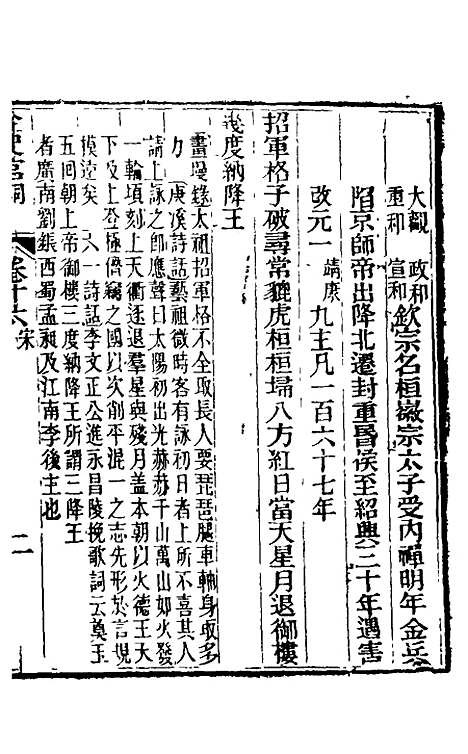 大觀 政和
重和 宣和 欽宗名桓徽宗太子受內禪明年金兵
陷京師帝出降北遷封重昏侯至紹興三十年遇害
改元一 靖康 九主凡一百六十七年
招軍格子破尋常貔虎桓桓埽八方紅日當天星月退御樓
幾度納降王
畫墁錄太祖招軍格不全取長人要琵琶腿車軸身取多
力 庚溪詩話藝祖微時客有詠初日者帝不喜其人
請上詠之卽應聲曰太陽初出光赫赫千山萬山如火發
一輪頃刻上天衢逐退羣星與殘月蓋本朝以火德王天
下及上登極僭竊之國以次削平混一之志先形於言規
摸遠矣 又一詩話李文正公進永昌陵挽歌詞云奠玉
五回朝上帝御樓三度納降王所謂三降王
者廣南劉鋹西蜀孟昶及江南李後主也
史宮詞 卷十六 宋 二